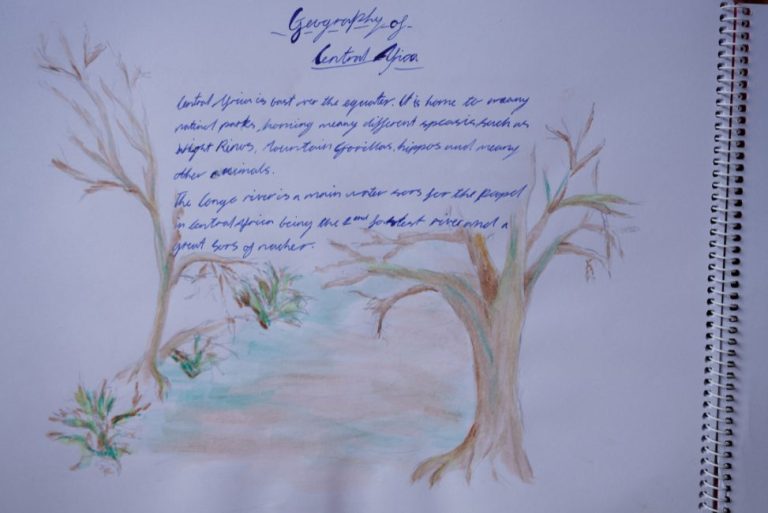 Geography of
Central Africa
Central Africa is bast over the equater. It is home to meany
natinal parks, homing meany different speasis, such as
Wight Rinos, Mountain Gorillas, hippos and meany
other animals.
The Congo river is a main water sors for the peapel
in central Africa being the 2nd fastest river and a
great sors of